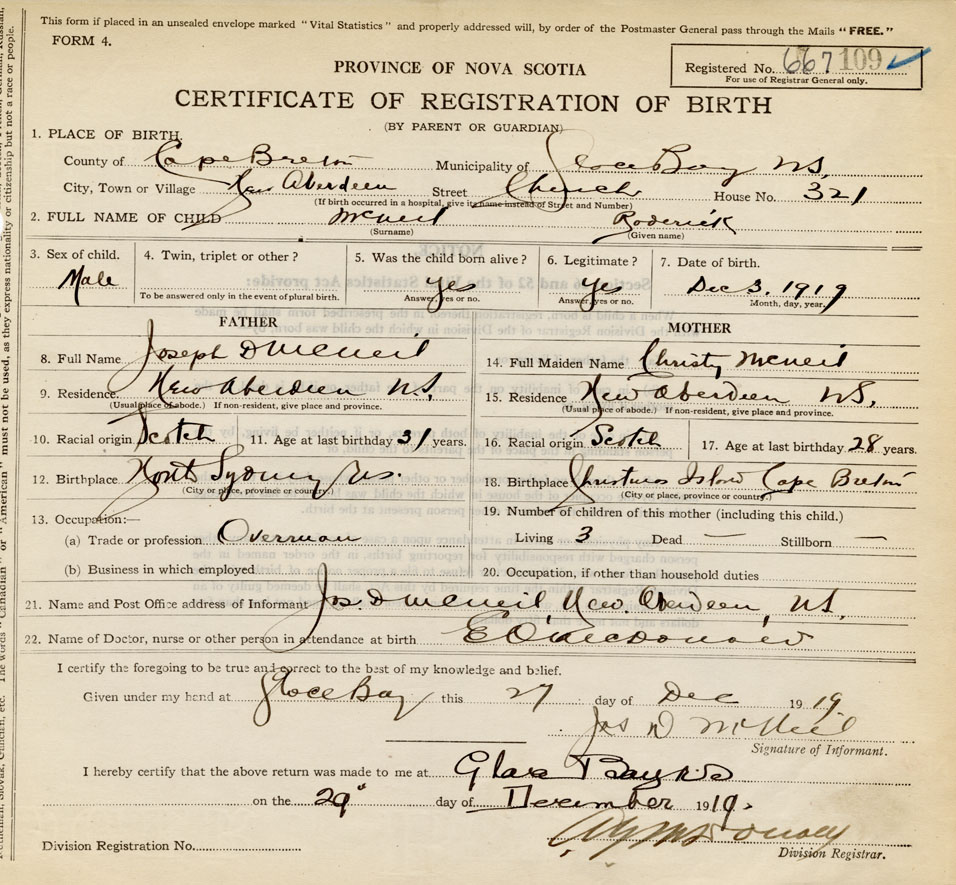 This form if placed in an unsealed envelope marked "Vital Statistics" and properly addressed will, by order of the Postmaster General pass through the Mails "FREE."
FORM 4.
Registered No. 667 109
For use of Registrar General only.
PROVINCE OF NOVA SCOTIA
CERTIFICATE OF REGISTRATION OF BIRTH
(BY PARENT OR GUARDIAN)
1. PLACE OF BIRTH.
County of Cape Breton Municipality of Glace Bay NS.
City, Town or Village New Aberdeen Street Church House No. 321
(If birth occurred in a hospital, give its name instead of Street and Number)
2. FULL NAME OF CHILD McNeil Roderick
(Surname) (Given name)
3. Sex of child. 4. Twin, triplet or other? 5. Was the child born alive? 6. Legitimate? 7. Date of birth.
Male yes yes Dec 3. 1919
To be answered only in the event of plural birth. Answer, yes or no. Answer, yes or no. Month, day, year.
FATHER MOTHER
8. Full Name Joseph D McNeil 14. Full Maiden Name Christy McNeil
9. Residence New Aberdeen N.S. 15. Residence New Aberdeen NS.
(Usual place of abode.) If non-resident, give place and province. (Usual place of abode.) If non-resident, give place and province.
10. Racial origin Scotch 11. Age at last birthday 31 years. 16. Racial origin Scotch 17. Age at last birthday 28 years.
12. Birthplace North Sydney NS. 18. Birthplace Christmas Island Cape Breton
(City or place, province or country.) (City or place, province or country.)
13. Occupation:— 19. Number of children of this mother (including this child.)
(a) Trade or profession Overman Living 3 Dead — Stillborn —
(b) Business in which employed 20. Occupation, if other than household duties
21. Name and Post Office address of Informant Jos. D McNeil New Aberdeen, N.S.
22. Name of Doctor, nurse or other person in attendance at birth. MacDonald
I certify the foregoing to be true and correct to the best of my knowledge and belief.
Given under my hend at Glace Bay this 27 day of Dec 1919
Jos D McNeil
Signature of Informant.
I hereby certify that the above return was made to me at Glace Bay NS
on the 29" day of December 1919.
Division Registrar.
Division Registration No.